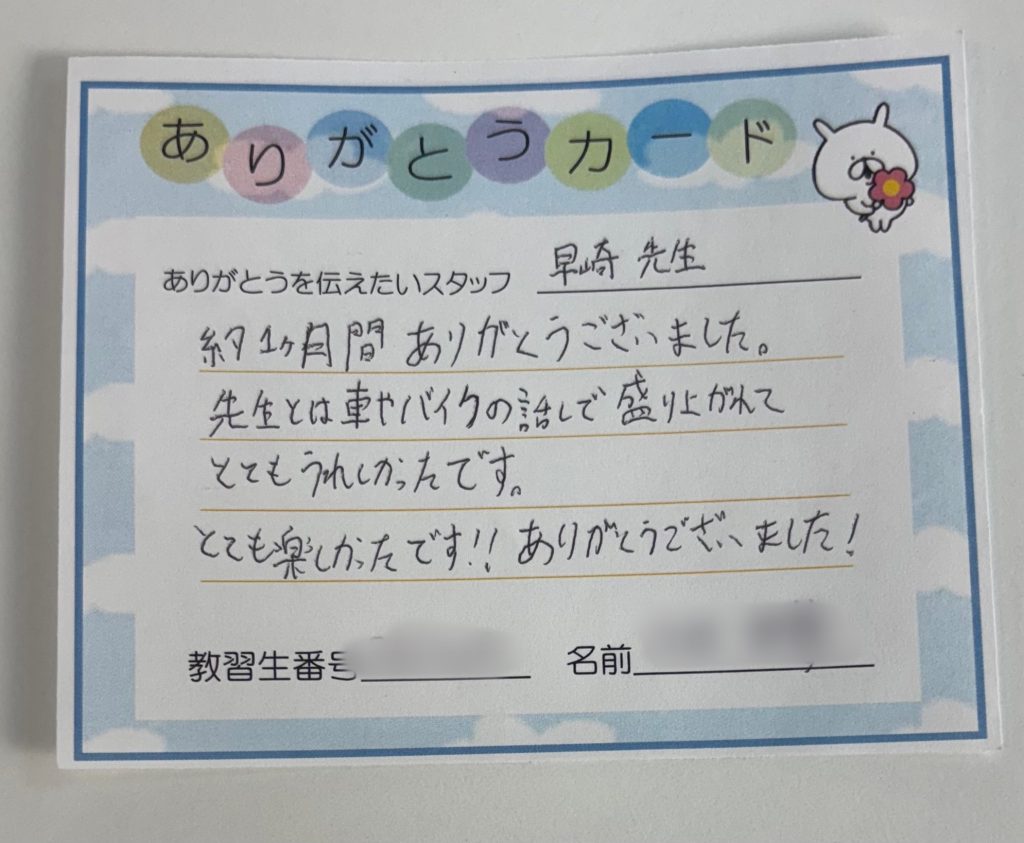 ありがとうカード
ありがとうを伝えたいスタッフ 早崎 先生
約1ヶ月間 ありがとうございました。
先生とは車やバイクの話しで盛り上がれて
とてもうれしかったです。
とても楽しかったです!! ありがとうございました!
教習生番号 名前